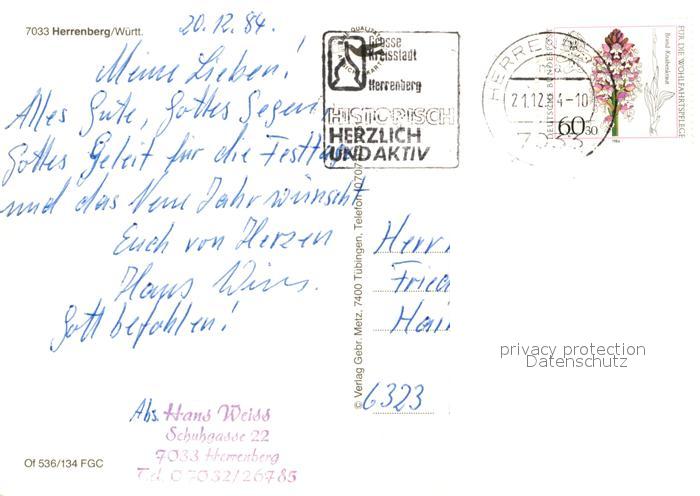 7033 Herrenberg/Württ.
20.12.84.
Meine Lieben!
Alles Gute, Gottes Segen
Gottes Geleit für die Festtage
und das Neue Jahr wünscht
Euch von Herzen
Hans Weiss.
Gott befohlen!
Abs. Hans Weiss
Schuhgasse 22
7033 Herrenberg
Tel. 07032/26785
Of 536/134 FGC
© Verlag Gebr. Metz, 7400 Tübingen, Telefon (0707
Grosse
Kreisstadt
Herrenberg
HISTORISCH
HERZLICH
UND AKTIV
HERREN
21.12. 4-10
7033
DEUTSCHE BUNDESPOST
60+30
1984
FÜR DIE WOHLFAHRTSPFLEGE
Brand-Knabenkraut
Herrn
Fried
Hai
6323
privacy protection
Datenschutz